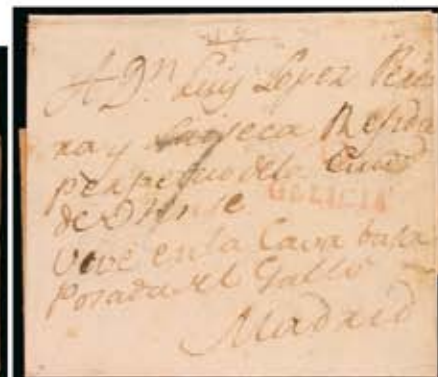 A Dn. Luis Lopez Perei
ra y Regidor
perpetuo de la Ciud
de Orense
GALICIA
Vive en la Cava baxa
Posada del Gallo
Madrid